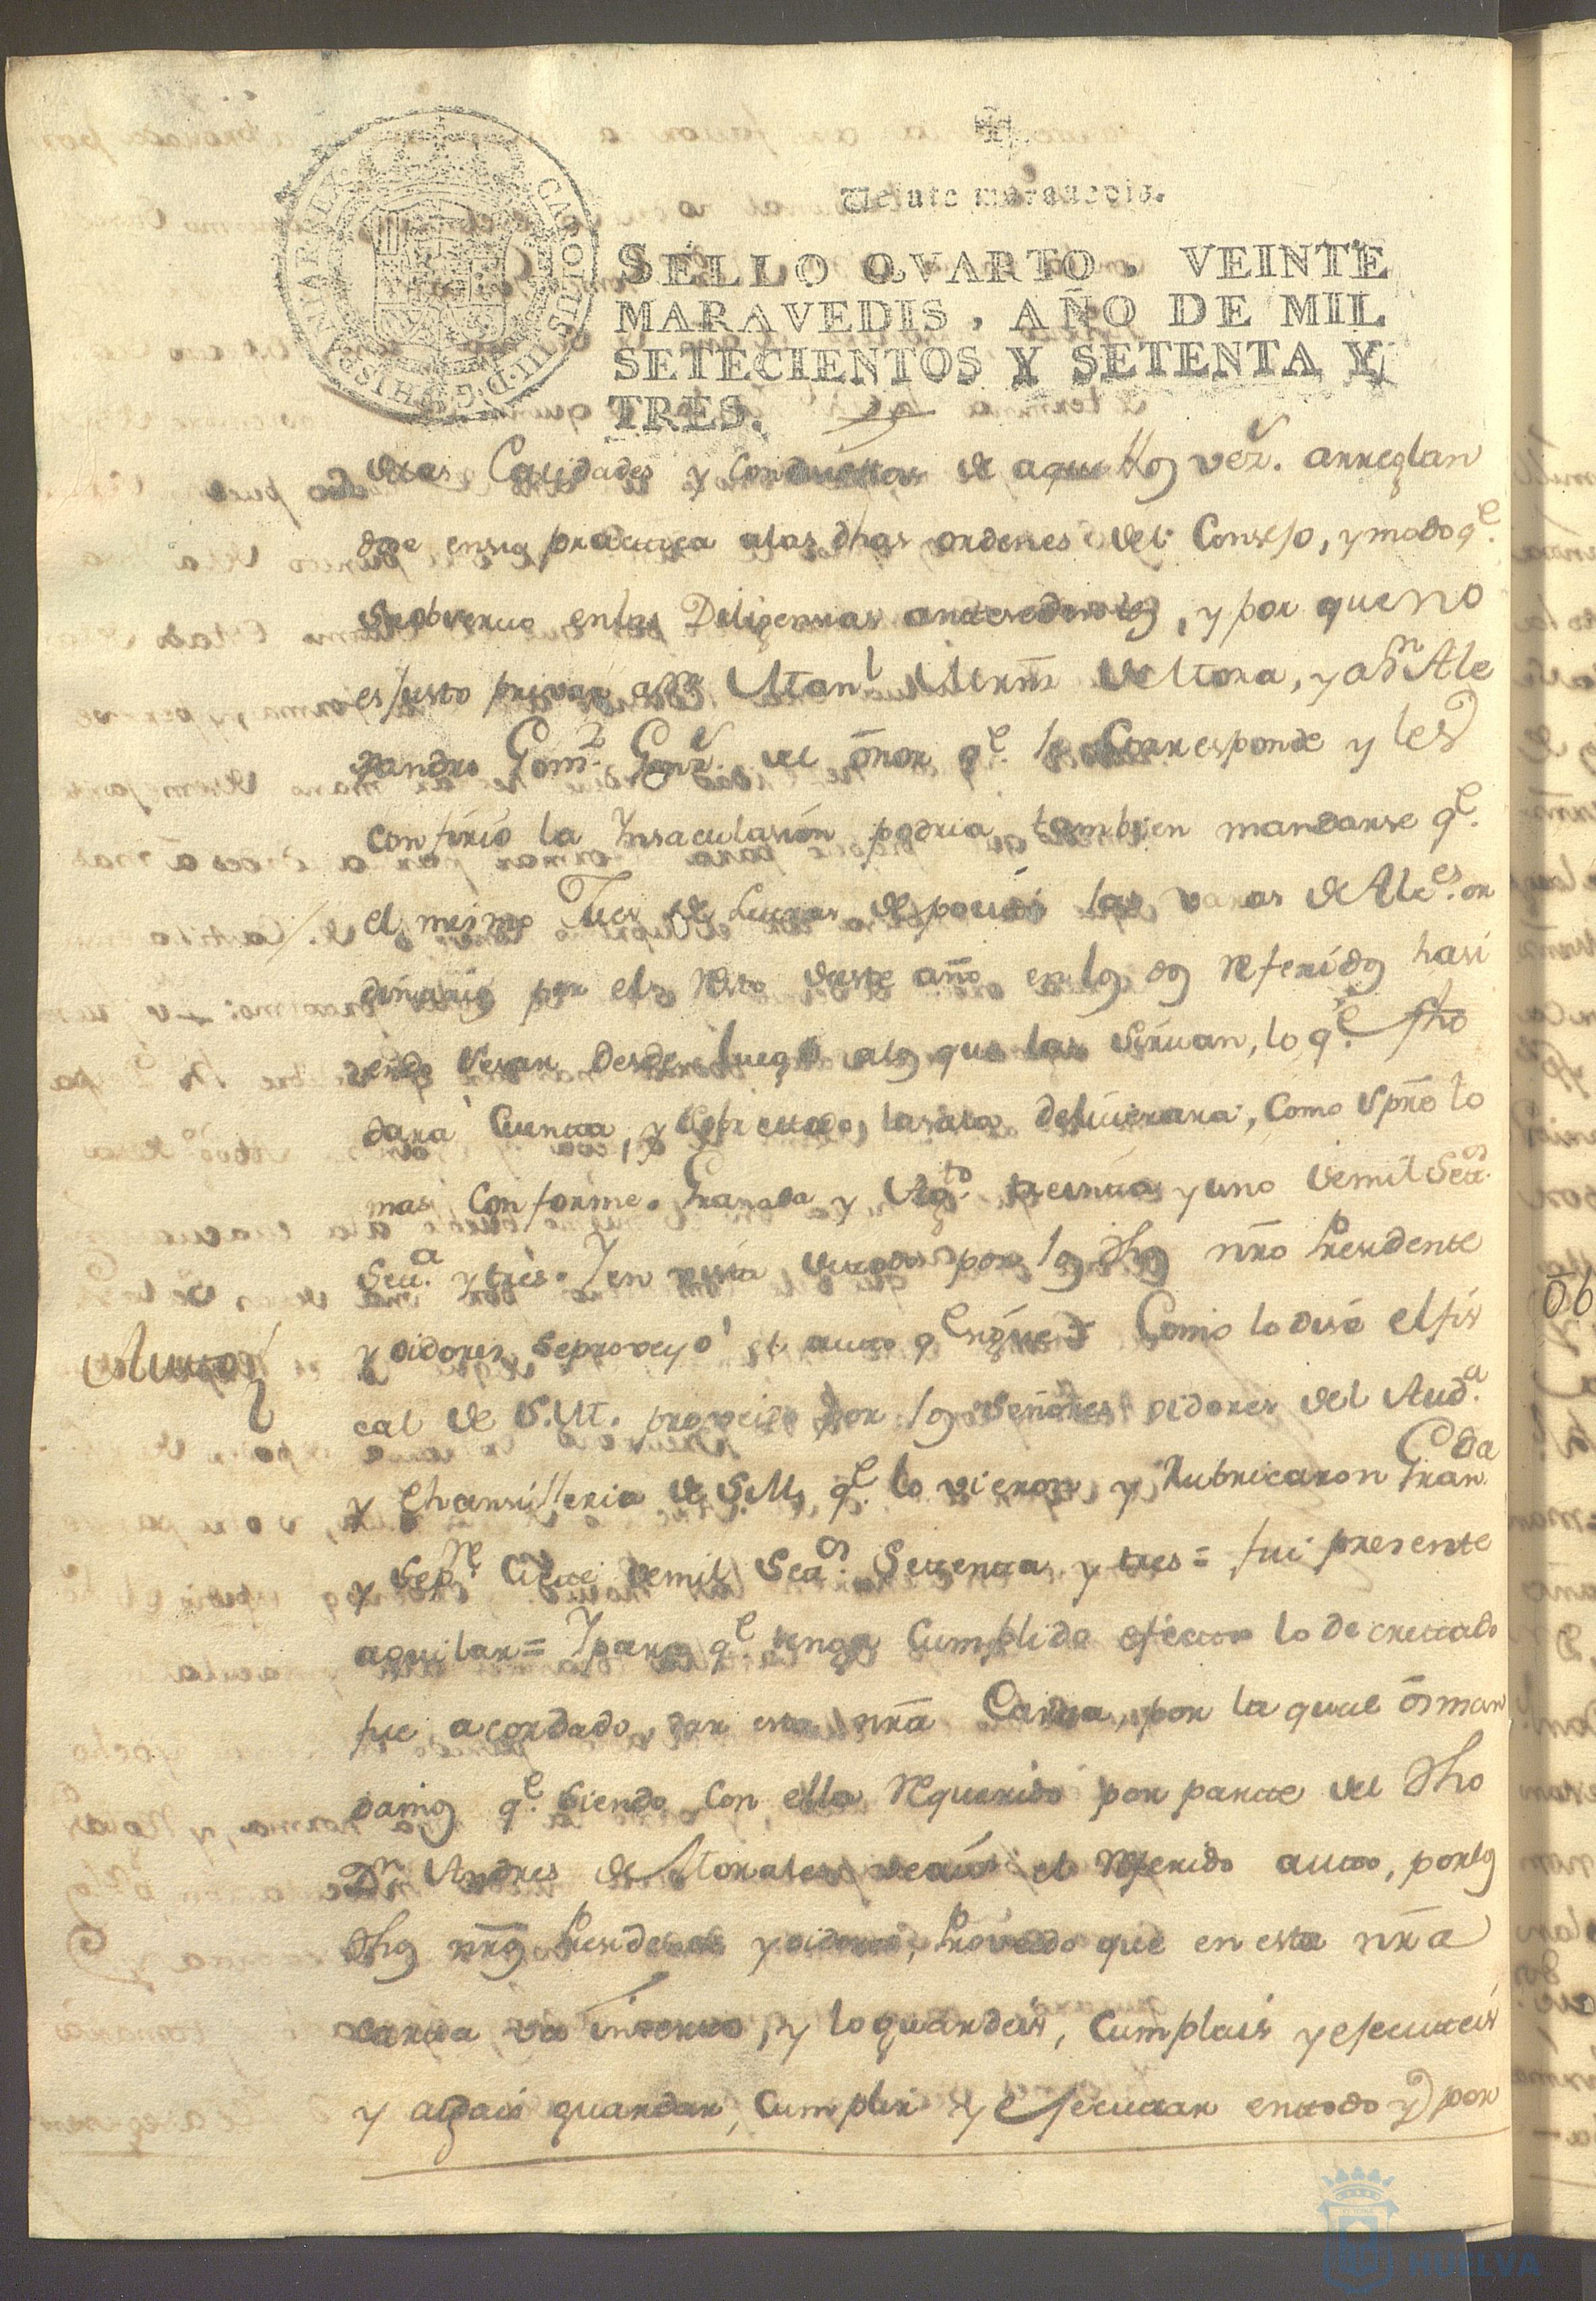 Veinte maravedis.
SELLO QVARTO, VEINTE
MARAVEDIS, AÑO DE MIL
SETECIENTOS Y SETENTA Y
TRES.
CAROLUS III D.G. HISPANIAR. REX
Calidades y de aquellos vez.s arreglan
dose en su practica a las dhas ordenes del Consejo, y modo q.e
se observo en las Diligencias antesedentes, y por que no
es justo privar a Dn Man.l de Mora, y a Dn Ale
xandro Gom.z Gonz.s del ōnor q.e le corresponde y les
confirió la Insaculasión podria tambien mandarse q.e
el mesmo Jues de Letras deposite las varas de Alc.es or
dinarios por el resto deste año en los dos referidos hasi
endo sesar desde luego a los que las sirvan, lo q.e fho
dará cuenta, y la sala deliverara, como spre lo
mas conforme. Granada y Ag.to treinta y uno de mil Set.os
Sett.a y tres. Y en vista por los dhos nro Presidente
y oidores, se proveyó el auto q.e sigue = Como lo dise el fis
Auto
cal de S.M. proveido por los señores oidores del Aud.a
y Chansilleria de S.M. q.e lo vieron, y Rubricaron Gran.da
y Sep.re siete de mil Set.os Setenta y tres = fui presente
aguilar = Y para q.e tenga cumplido efecto lo decretado
fue acordado, dar esta nra Carta, por la qual os man
damos q.e siendo con ella requerido por parte del dho
Dn Andres de Morales veais el referido auto, por los
dhos nros Presidente y oidores, Proveido que en esta nra
carta va inserto, y lo guardeis, cumplais y executeis
y agais guardar, cumplir y executar en todo y por
HUELVA